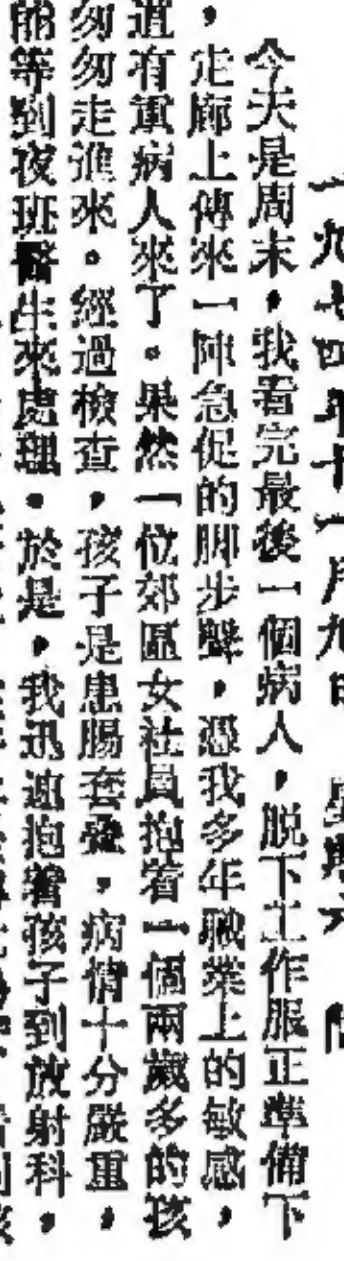 一九七四年十一月九日　星期六
今天是周末，我看完最後一個病人，脱下工作服正準備下
，走廊上傳來一陣急促的脚步聲，憑我多年職業上的敏感，
道有重病人來了。果然一位郊區女社員抱着一個兩歲多的孩
匆匆走進來。經過檢查，孩子是患腸套叠，病情十分嚴重，
能等到夜班醫生來處理。於是，我迅速抱着孩子到放射科，